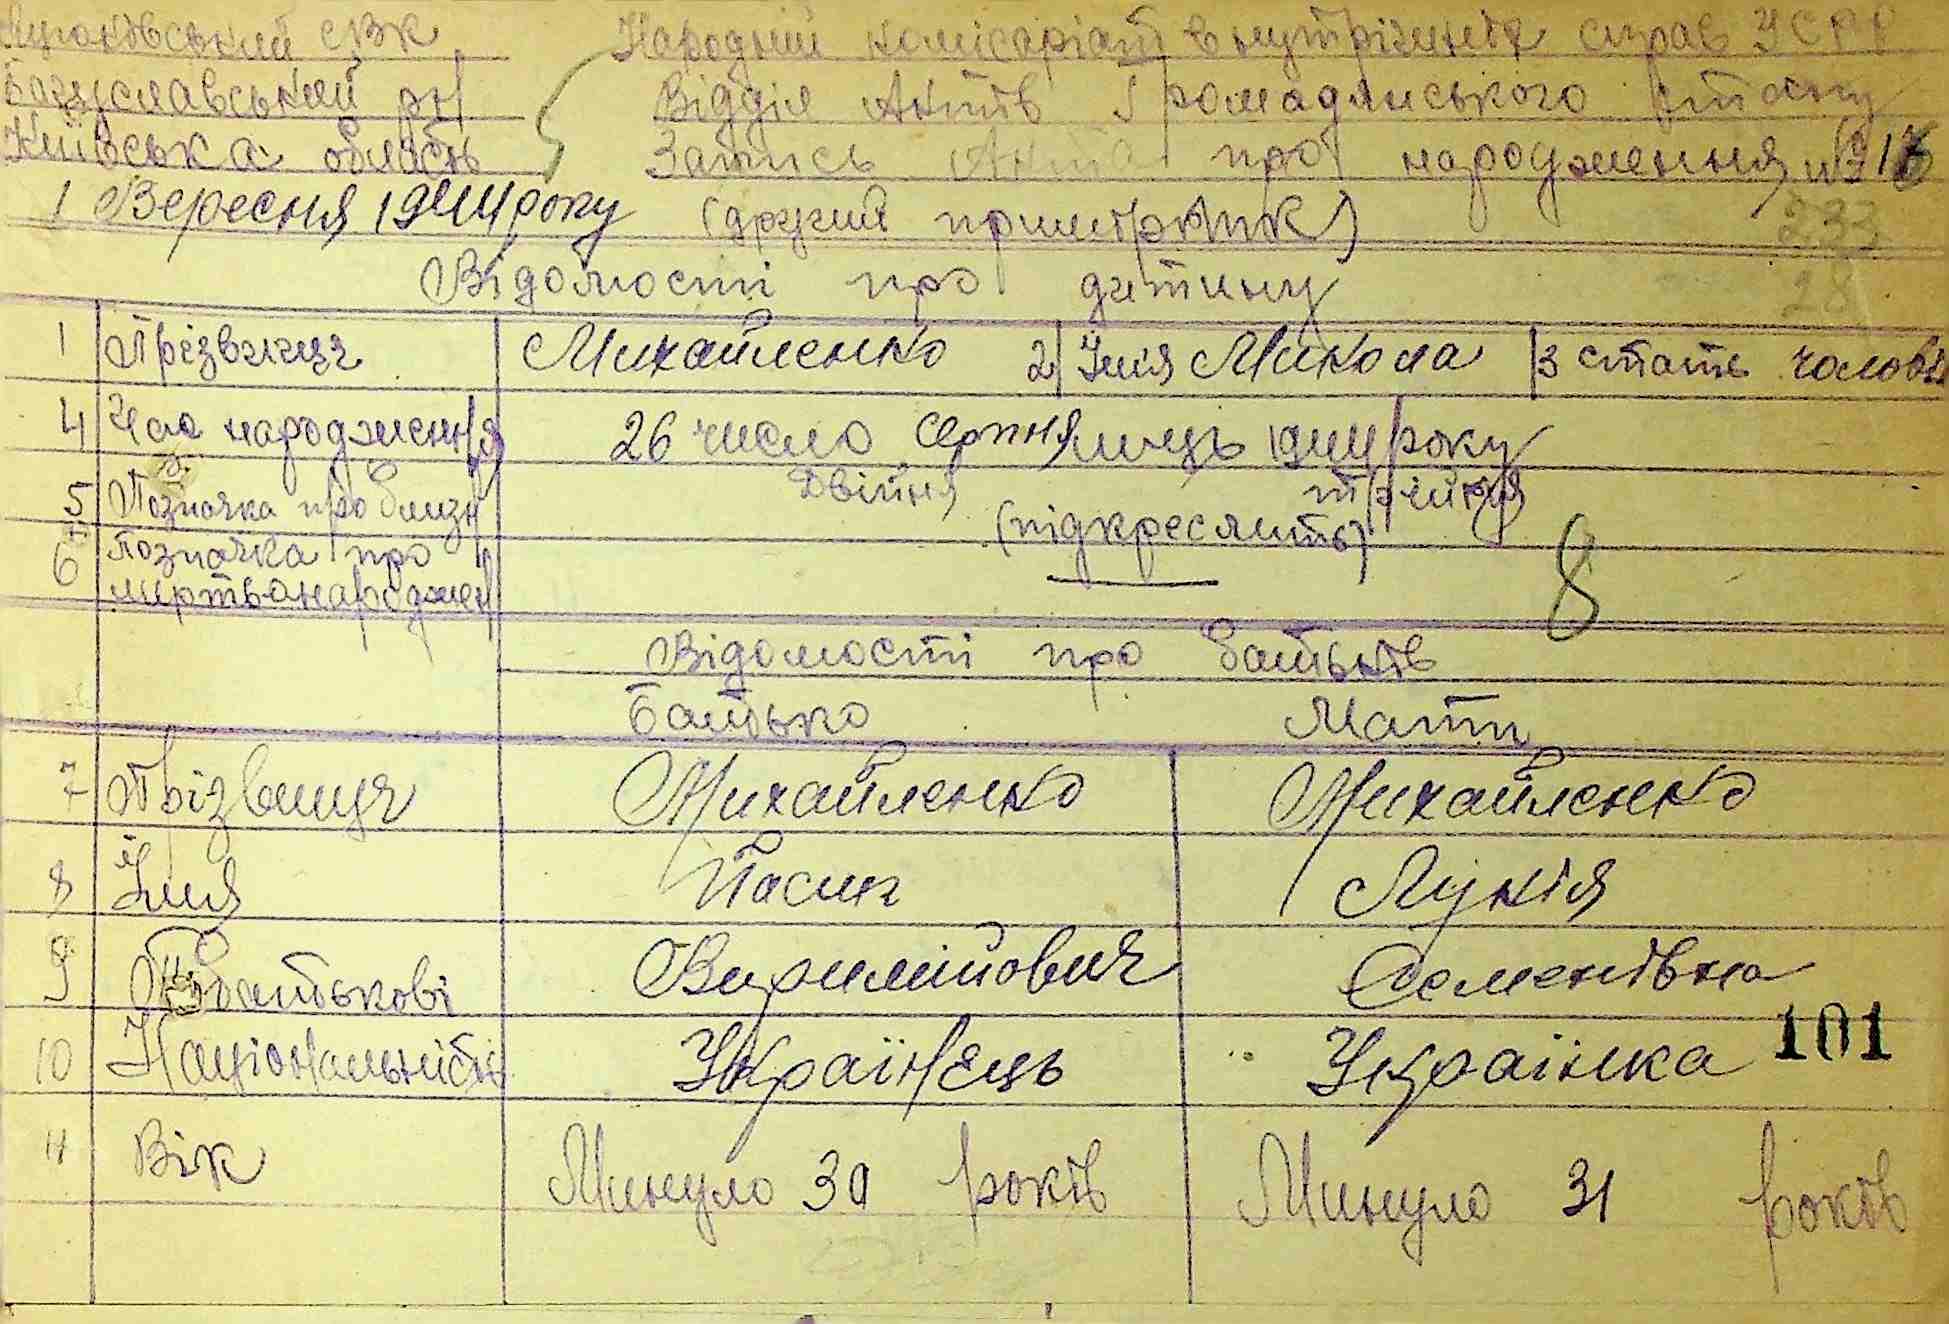 СВК Народній комісаріат внутрішніх справ УСРР
Богуславський рн Відділ Актів Громадянського стану
Київська область Запись Акта про народження №
1 Вересня 1944 року (другий примірник)
233
28
Відомості про дитину
1 Прізвище Михайленко 2 Імя Микола 3 стать чолов
4 Час народження 26 число серпня місць 1944 року
5 Позначка про близн Двійня трійня
(підкреслить)
6 Позначка про
мертвонароджен
8
Відомості про батьків
Батько Мати
7 Прізвище Михайленко Михайленко
8 Імя Лукія
9 Побатькові Семенівна
10 Національність Українець Українка 101
11 Вік Минуло років Минуло 31 років